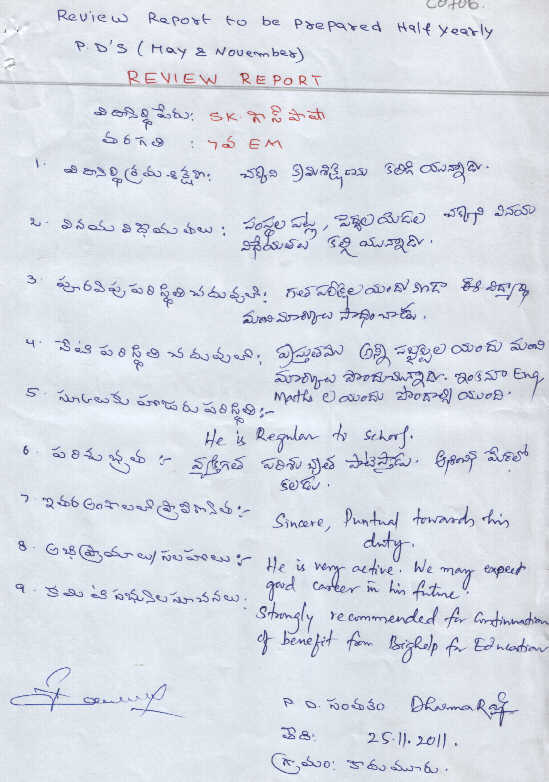 C0706.
Review Report to be prepared Half yearly
P.D'S (May & November)
REVIEW REPORT
విద్యార్థి పేరు: SK. గౌస్ పాషా
తరగతి : 7వ EM
1. విద్యార్థి క్రమశిక్షణ: చక్కని క్రమశిక్షణ కలిగి యున్నాడు.
2. వినయ విధేయతలు: పెద్దల యెడల చక్కని వినయ
విధేయతలు కల్గి యున్నాడు.
3. పూర్వపు పరిస్థితి చదువులో: గత పరీక్షల యందు కూడా ఈ విద్యార్థి
మంచి మార్కులు సాధించాడు.
4. నేటి పరిస్థితి చదువులో: ప్రస్తుతము అన్ని సబ్జెక్టుల యందు మంచి
మార్కులు పొందుచున్నాడు. ఇంకనూ Eng
Maths ల యందు పొందాల్సి యుంది.
5. స్కూలుకు హాజరు పరిస్థితి:-
He is Regular to school.
6. పరిశుభ్రత :- వ్యక్తిగత పరిశుభ్రత పాటిస్తాడు.
కలడు.
7. ఇతర అంశాలలో ప్రావీణ్యత:-
Sincere, Puntual towards his
duty.
8. అభిప్రాయాలు/సలహాలు:-
He is very active. We may expect
good career in his future.
9. కమిటి సభ్యుల సూచనలు:
Strongly recommended for Continuation
of benefit from Brighelp for Education
P.D. సంతకం DharmaRaj
తేది: 25.11.2011.
గ్రామం: కారుమూరు.